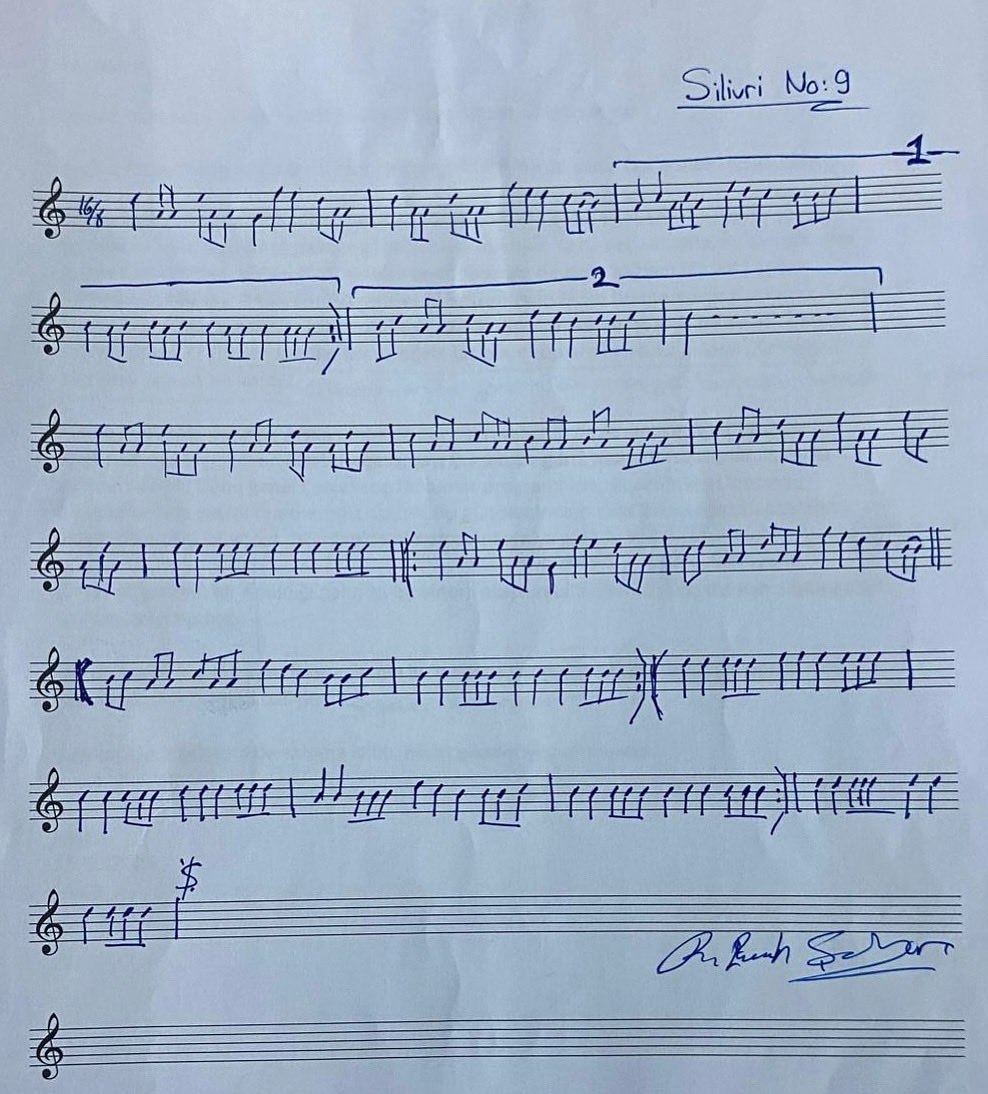 Silivri No:9
16/8
1
2